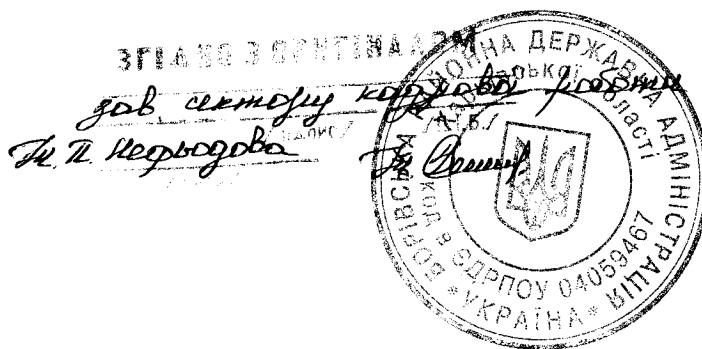 ЗГІДНО З ОРИГІНАЛОМ
зав. сектору кадрової роботи
/ПІДПИС/ /П.І.Б./
Нефьодова
БОРІВСЬКА РАЙОННА ДЕРЖАВНА АДМІНІСТРАЦІЯ
Харківської області
КОД В ЄДРПОУ 04059467
* УКРАЇНА *